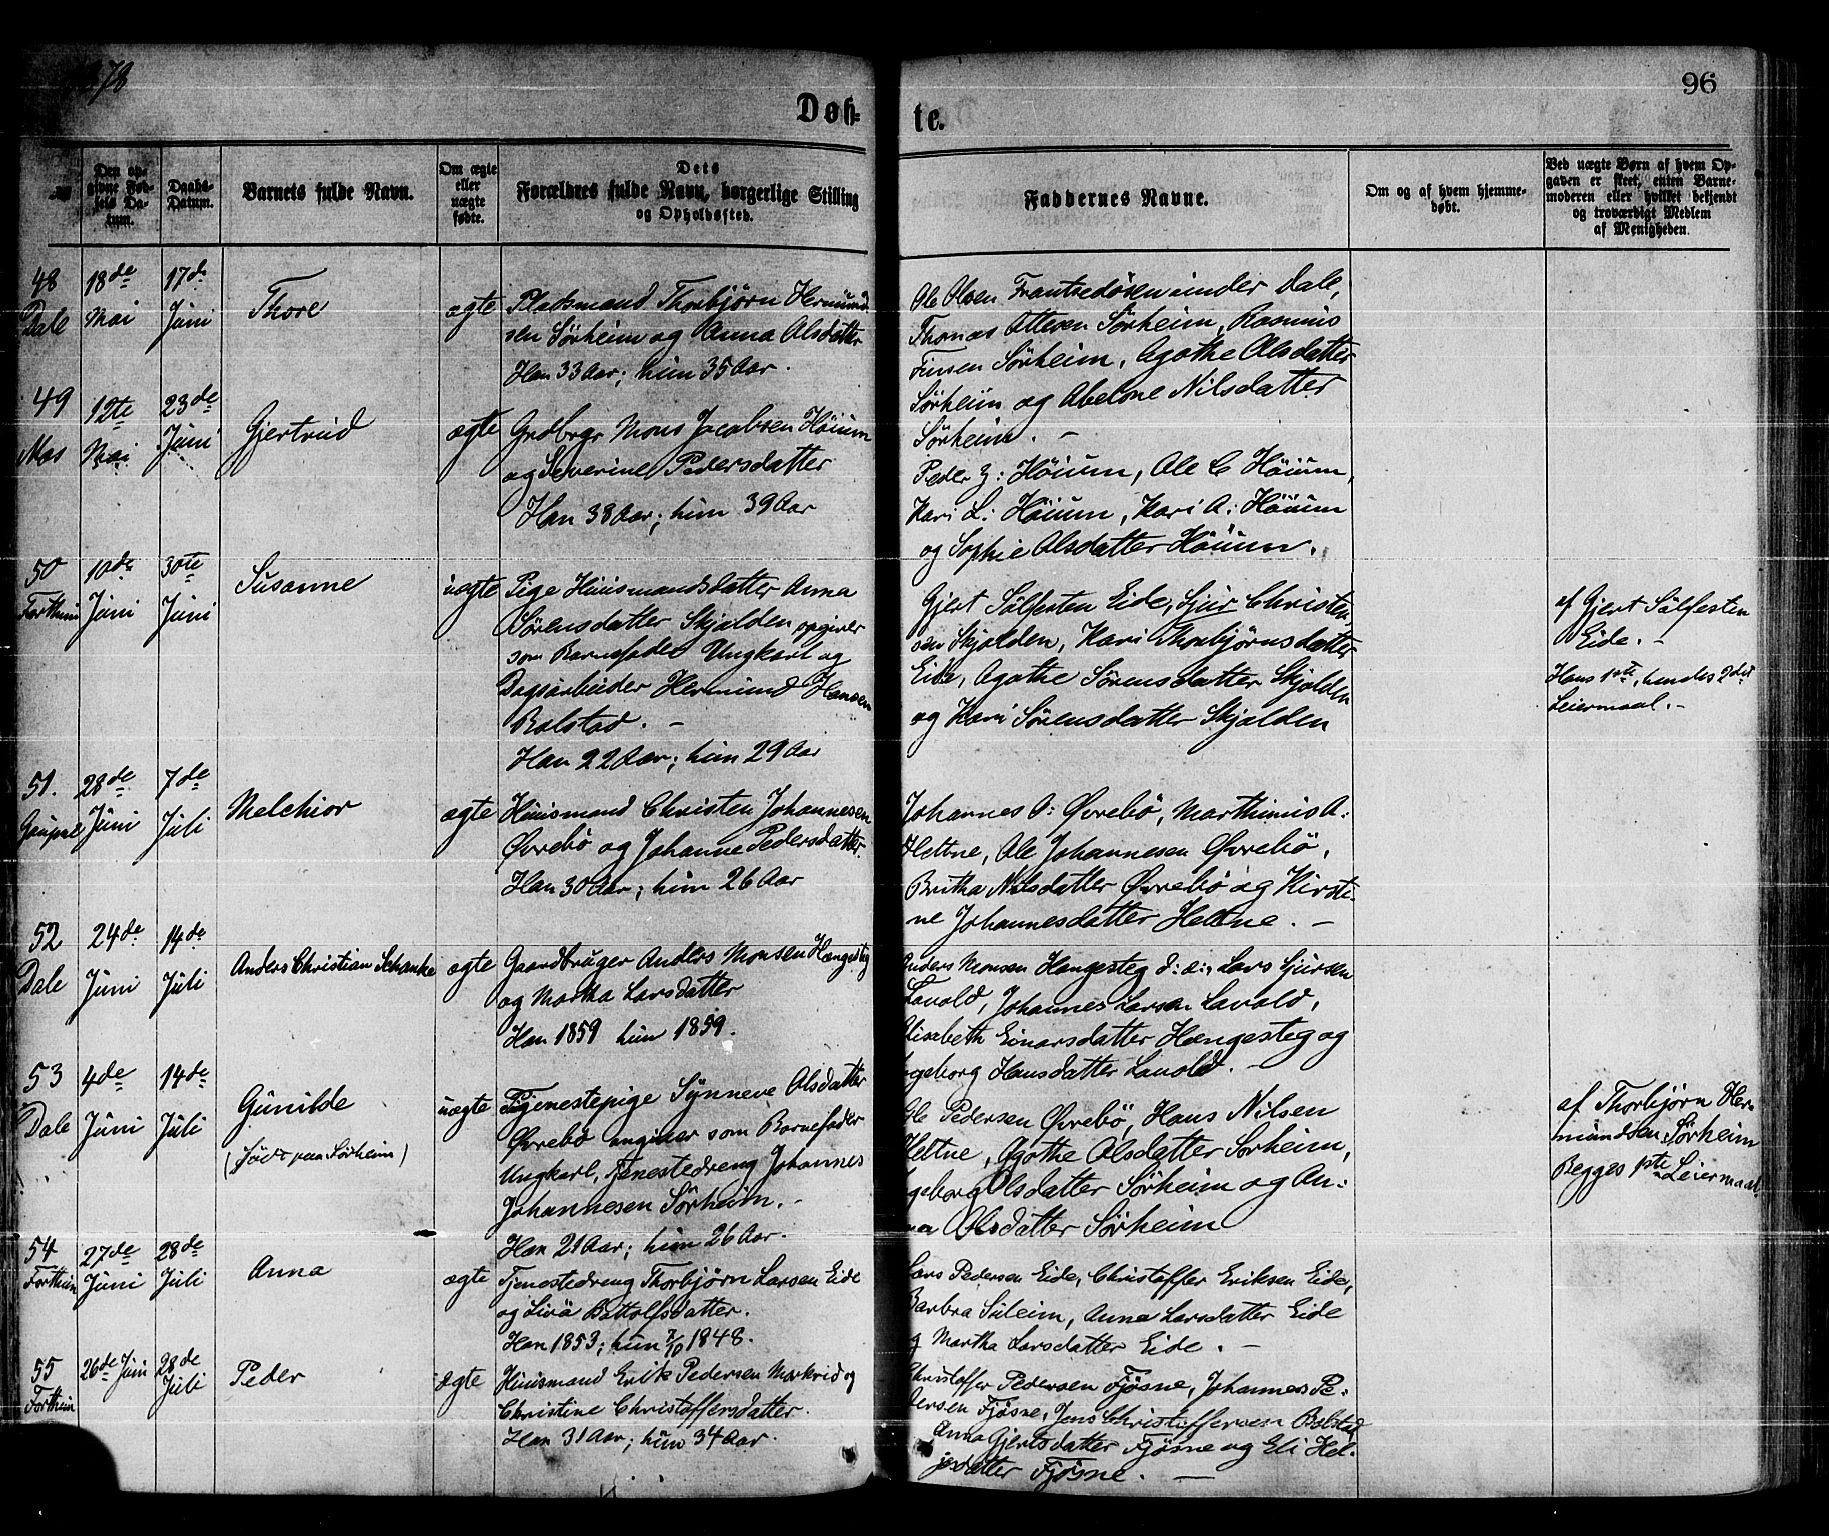 1878
96
Døb-
te.
Den op-
givne Fød-
sels Da-
tum.
Daabs-
Datum.
Barnets fulde Navn.
Om ægte
eller
uægte
fødte.
Dets
Forældres fulde Navn, borgerlige Stilling
og Opholdssted.
Faddernes Navne.
Om og af hvem hjemme-
døbt.
Ved uægte Børn af hvem Op-
gaven er skeet, enten Barne-
moderen eller hvilket bekjendt
og troværdigt Medlem
af Menigheden.
48
Dale
18de
Mai
17de
Juni
Thore
ægte
Pladsmand Thorbjørn Hermund
sen Sørheim og Anna Olsdatter
Han 33 Aar; hun 35 Aar.
Ole Olsen Frantzedøsen under Dale,
Thomas Ottesen Sørheim, Rasmus
Finsen Sørheim, Agathe Olsdatter
Sørheim og Abelone Nilsdatter
Sørheim. –
49
Næs
12te
Mai
23de
Juni
Gjertrud
ægte
Grdbrgr Mons Jacobsen Høium
og Severine Pedersdatter
Han 38 Aar; hun 39 Aar
Peder J: Høium, Ole C Høium,
Kari L: Høium, Kari A: Høium
og Sophie Olsdatter Høium.
50
Forthun
10de
Juni
30te
Juni
Susanne
uægte
Pige Huusmandsdatter Anna
Sørensdatter Skjolden opgiver
som Barnefader Ungkarl og
Dagsarbeider Hermund Hansen
Bolstad. –
Han 22 Aar; hun 29 Aar
Gjert Sølfesten Eide, Sjur Christen-
sen Skjolden, Kari Thorbjørnsdatter
Eide, Agathe Sørensdatter Skjolden
og Kari Sørensdatter Skjolden
af Gjert Sølfesten
Eide. –
Hans 1ste, hendes 2det
Leiermaal. –
51.
Gaupne
28de
Juni
7de
Juli
Melchior
ægte
Huusmand Christen Johannesen
Øvrebø og Johanne Pedersdatter.
Han 30 Aar; hun 26 Aar
Johannes O: Øvrebø, Marthinus A:
Hettne, Ole Johannesen Øvrebø,
Britha Nilsdatter Øvrebø og Kirsti-
ne Johannesdatter Hettne. –
52
Dale
24de
Juni
14de
Juli
Anders Christian Schanke
ægte
Gaardbruger Anders Monsen Hængesteg
og Martha Larsdatter
Han 1859 hun 1859.
Anders Monsen Hængesteg d: æ:, Lars Sjursen
Lavold, Johannes Larsen Lavold,
Elisabeth Einarsdatter Hængesteg og
Ingeborg Hansdatter Lavold. –
53
Dale
4de
Juni
14de
Juli
Gunilde
(født paa Sørheim)
uægte
Tjenestepige Synneve Olsdatter
Øvrebø angiver som Barnefader
Ungkarl, Tjenestedreng Johannes
Johannesen Sørheim. –
Han 21 Aar; hun 26 Aar.
Ole Pedersen Øvrebø, Hans Nilsen
Hettne, Agathe Olsdatter Sørheim,
Ingeborg Olsdatter Sørheim og An-
na Olsdatter Sørheim
af Thorbjørn Her-
mundsen Sørheim
Begges 1ste Leiermaal.
54
Forthun
27de
Juni
28de
Juli
Anna
ægte
Tjenestedreng Thorbjørn Larsen Eide
og Botolfsdatter.
Han 1853; hun 1848.
Lars Pedersen Eide, Christoffer Eriksen Eide,
Barbra Suleim, Anna Larsdatter Eide
og Martha Larsdatter Eide. –
55
Forthun
26de Juni
28de
Juli
Peder
ægte
Huusmand Erik Pedersen Morkrid og
Christine Christoffersdatter.
Han 31 Aar; hun 34 Aar.
Christoffer Pedersen Fjøsne, Johannes Pe-
dersen Fjøsne, Jens Christoffersen Bolstad
Anna Gjertsdatter Fjøsne og Eli Hel-
jesdatter Fjøsne. –